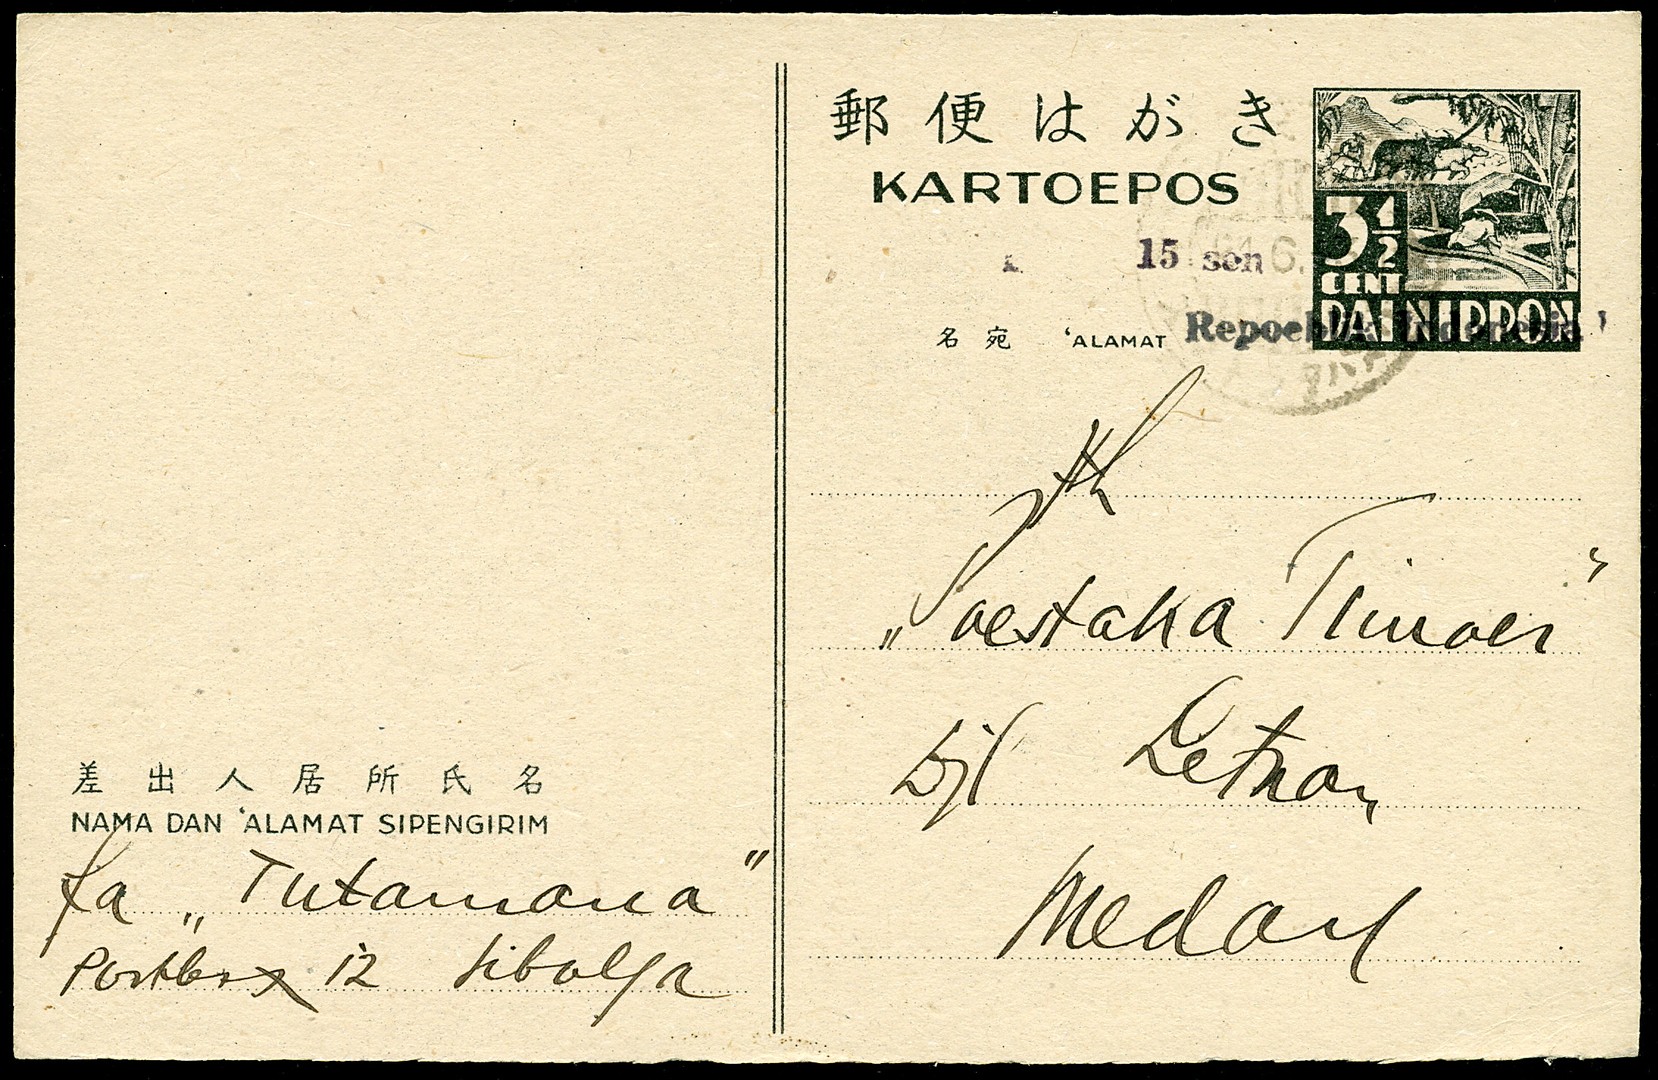 郵便はがき
KARTOEPOS
3 1/2
CENT
DAI NIPPON
15 sen
Repoeblik Indonesia
名宛 'ALAMAT
Jth
„Poestaka Timoer"
Medan
差出人居所氏名
NAMA DAN 'ALAMAT SIPENGIRIM
fa „Tutamana"
Postbox 12 Sibolga